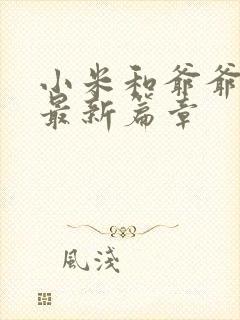 小米和爷爷
最新篇章
風淺